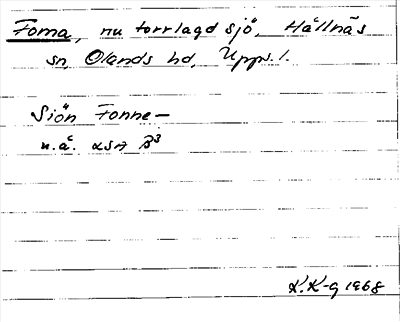 Foma, nu torrlagd sjö, Hållnäs
sn, Olands hd, Upps. l.
Siön Fonne –
u.å. LSA B³
K.K-g 1968